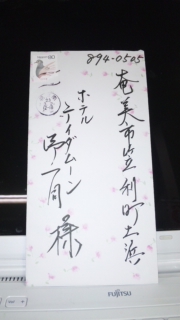 894-0505
奄美市笠利町土浜
ホテル
ティダムーン
様
FUJITSU